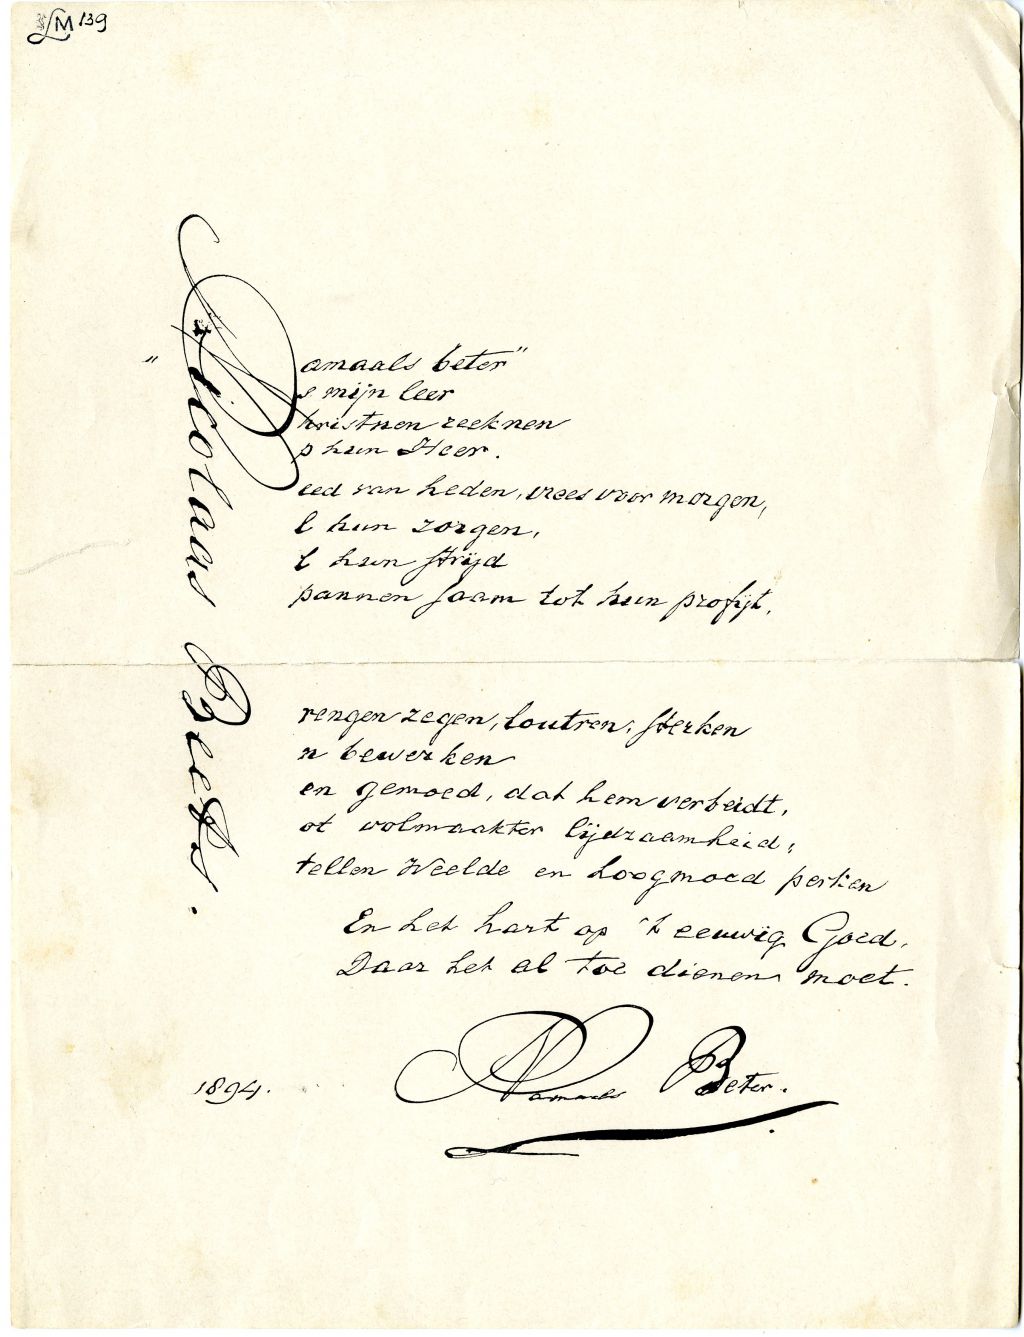 LM 139
"Nicolaas Beets.
amaals beter"
s mijn leer
hristnen reeknen
p hun Heer.
eed van heden, vrees voor morgen,
l hun zorgen,
l hun strijd
pannen saam tot hun profijt,
rengen zegen, loutren, sterken
n bewerken
en gemoed, dat hem verbeidt,
ot volmaakter lijdzaamheid;
tellen Weelde en hoogmoed perken
En het hart op 't eeuwig Goed,
Daar het al toe dienen moet.
1894. Namaals Beter.